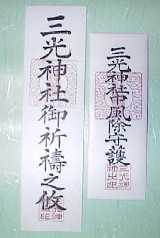 三光神社中風除守護
三光神社御祈禱之攸